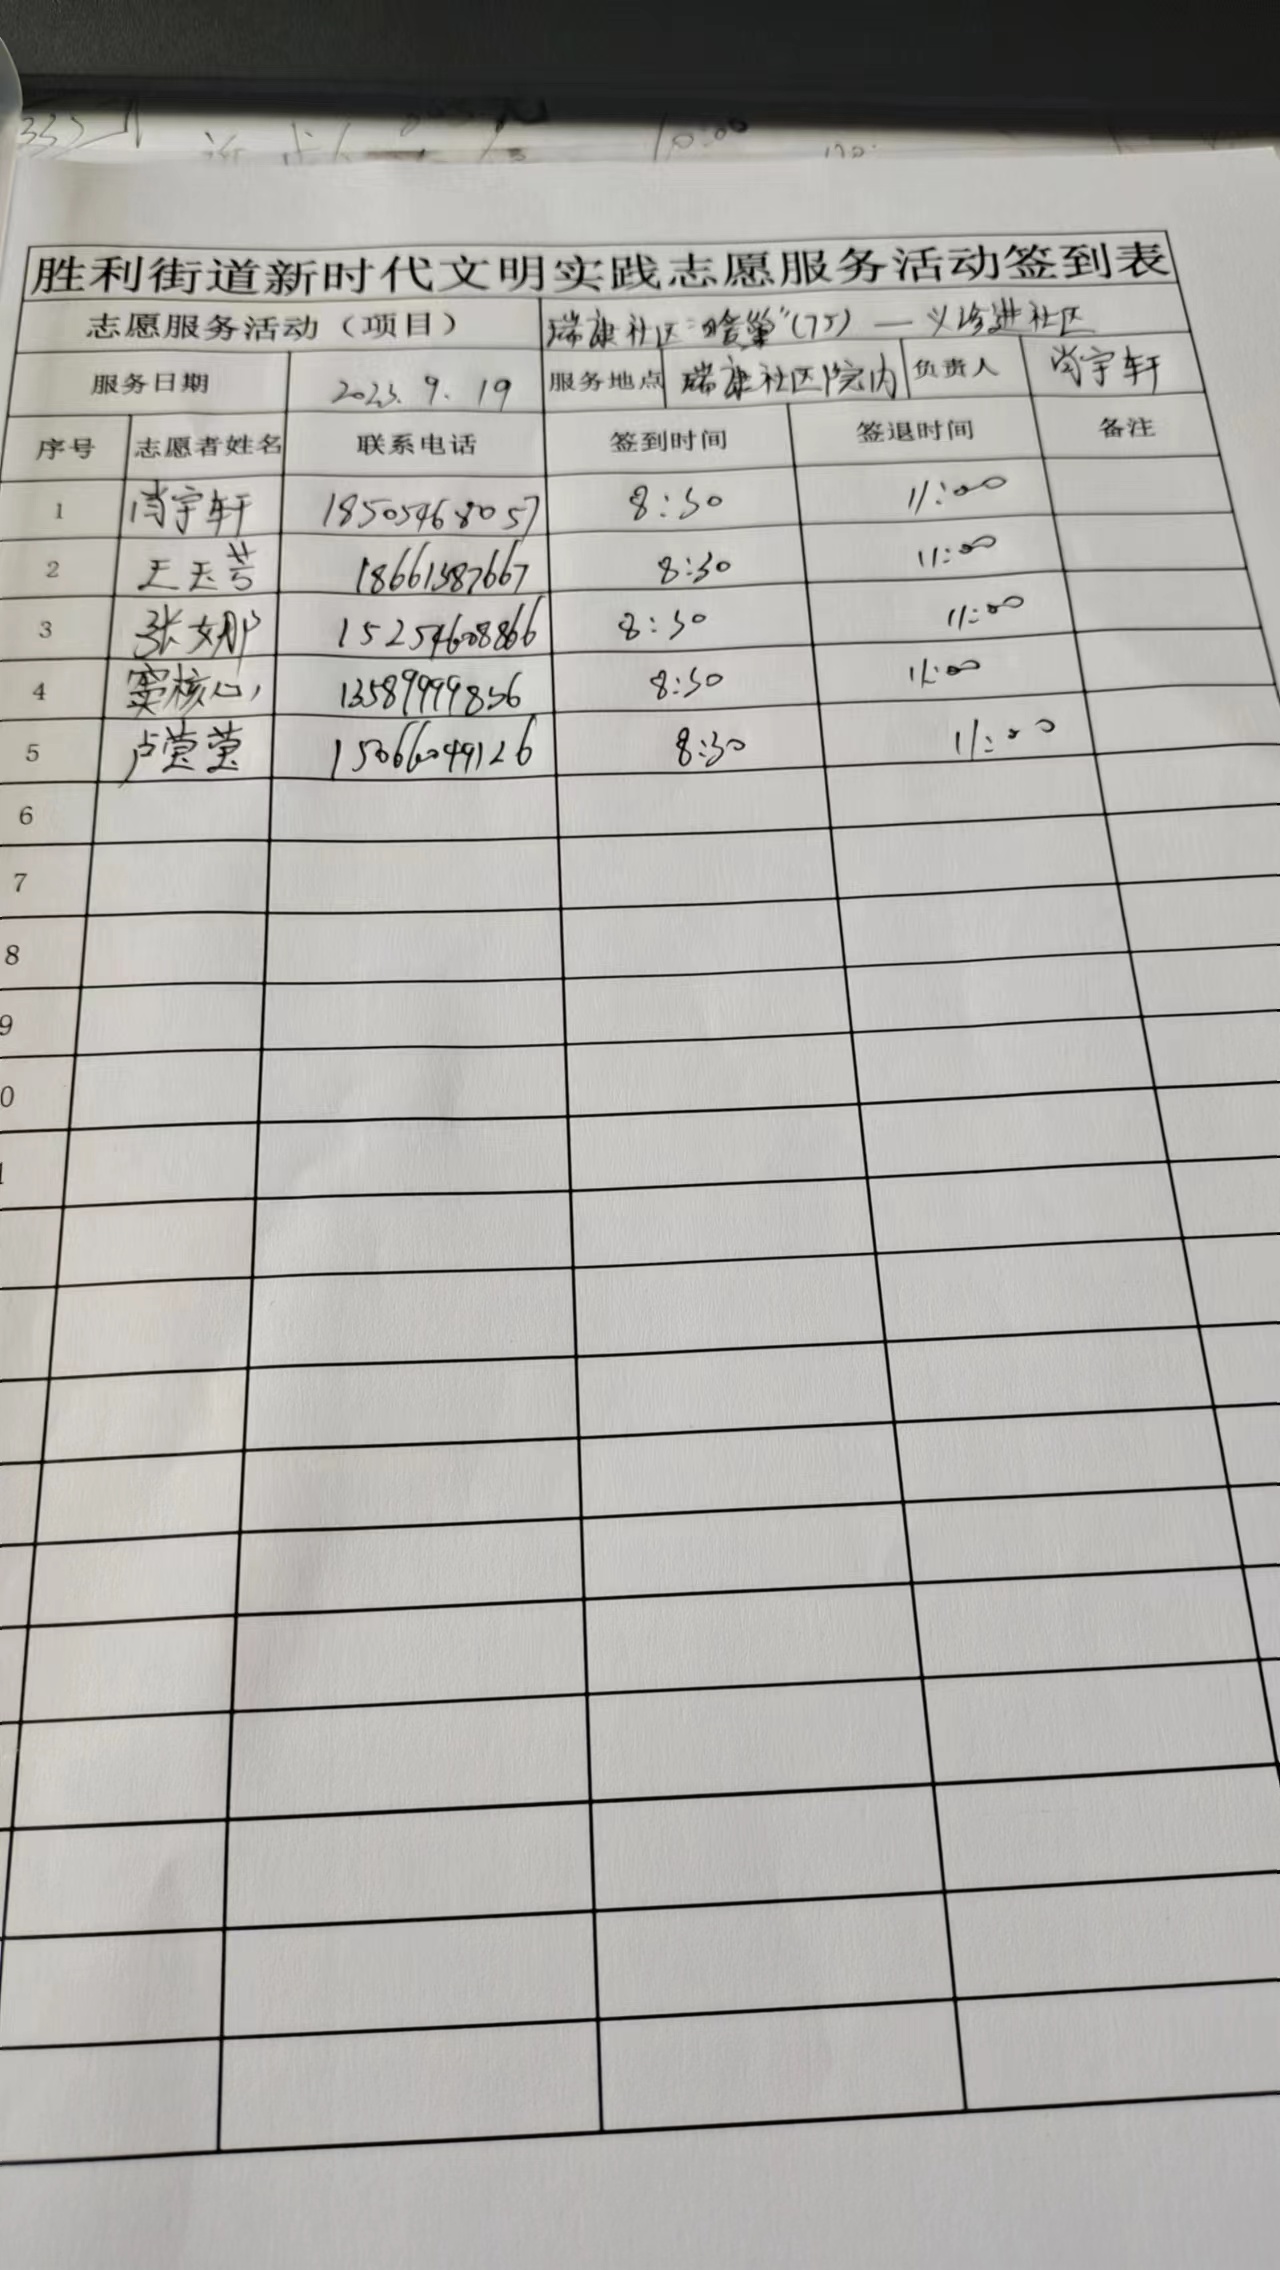 10:00
胜利街道新时代文明实践志愿服务活动签到表
志愿服务活动（项目） 瑞康社区"暗巢"(75) — 义诊进社区
服务日期 2023.9.19 服务地点 瑞康社区院内 负责人 肖宇轩
序号 志愿者姓名 联系电话 签到时间 签退时间 备注
1 肖宇轩 18505468057 8:30 11:00
2 王玉芳 18661387667 8:30 11:00
3 张女那 15254608866 8:30 11:00
4 窦核心 13589999856 8:30 11:00
5 卢莹莹 15066049126 8:30 11:00
6
7
8
9
0